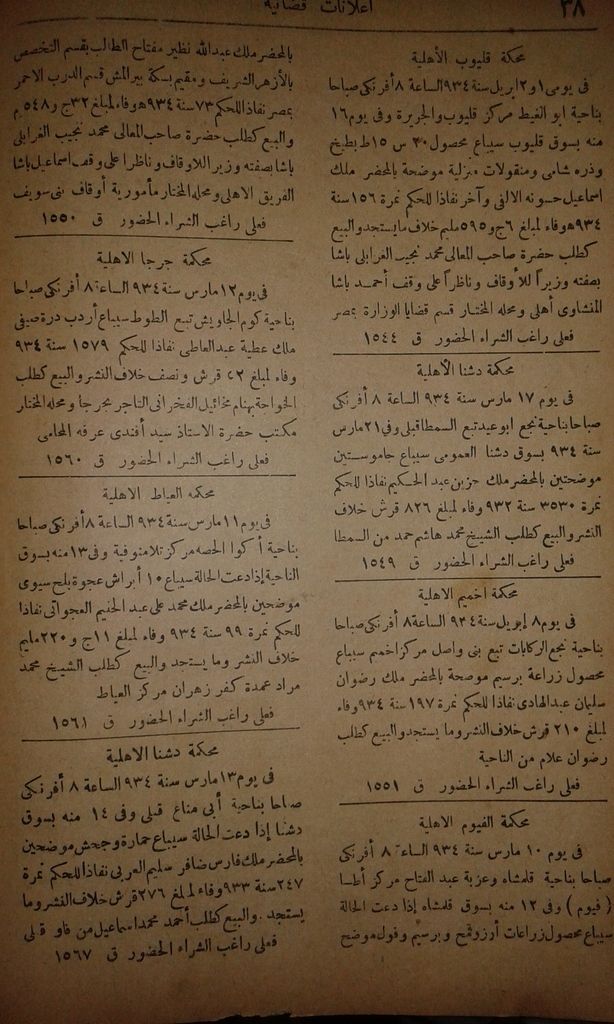 ٣٨
اعلانات قضائية
محكة قليوب الأهلية
فى يومى ١ و ٢ ابريل سنة ٩٣٤ الساعة ٨ أفرنكى صباحا
بناحية ابو الغيط مركز قليوب والجزيرة وفى يوم ١٦
منه بسوق قليوب سيباع محصول ٢٠ س ١٥ ط بطيخ
وذره شامى ومنقولات منزلية موضحة بالمحضر ملك
اسماعيل حسونه الالفى وآخر نفاذا للحكم نمرة ١٥٦ سنة
٩٣٤ هوفاء لمبلغ ٦ج و ٥٩٥ مليم خلاف ما يستجد والبيع
كطلب حضرة صاحب المعالى محمد نجيب الغرابلى باشا
بصفته وزيرا للأوقاف وناظرا على وقف أحمد باشا
المنشاوى أهلى ومحله المختار قسم قضايا الوزارة بمصر
فعلى راغب الشراء الحضور ق ١٥٤٤
محكمة دشنا الأهلية
فى يوم ١٧ مارس سنة ٩٣٤ الساعة ٨ أفرنكى
صباحا بناحية نجع ابو عيد تبع السمطا قبلى وفى ٢١ مارس
سنة ٩٣٤ بسوق دشنا العمومى سيباع جاموستين
موضحتين بالمحضر ملك حزين عبد الحكيم نفاذا للحكم
نمرة ٣٥٣٠ سنة ٩٣٢ وفاء لمبلغ ٨٢٦ قرش خلاف
النشر والبيع كطلب الشيخ محمد هاشم حمد من السمطا
فعلى راغب الشراء الحضور ق ١٥٤٩
محكمة اخميم الاهلية
فى يوم ٨ إبريل سنة ٩٣٤ الساعة ٨ أفرنكى صباحا
بناحية نجع الركابات تبع بنى واصل مركز اخميم سيباع
محصول زراعة برسيم موضحة بالمحضر ملك رضوان
سليمان عبد الهادى نفاذا للحكم نمرة ١٩٧ سنة ٩٣٤ وفاء
لمبلغ ٢١٠ قرش خلاف النشر وما يستجد والبيع كطلب
رضوان علام من الناحية
فعلى راغب الشراء الحضور ق ١٥٥١
محكمة الفيوم الاهلية
فى يوم ١٠ مارس سنة ٩٣٤ الساعة ٨ أفرنكى
صباحا بناحية قلمشاه وعزبة عبد الفتاح مركز أطسا
( فيوم ) وفى ١٢ منه بسوق قلمشاه إذا دعت الحالة
سيباع محصول زراعات أرز وقمح وبرسيم وفول موضح
بالمحضر ملك عبدالله نظير مفتاح الطالب بقسم التخصص
بالأزهر الشريف ومقيم بسكة بير المش قسم الدرب الاحمر
بمصر نفاذا للحكم ٧٣ سنة ٩٣٤ هوفاء لمبلغ ٣٢ج و ٥٤٨م
والبيع كطلب حضرة صاحب المعالى محمد نجيب الغرابلى
باشا بصفته وزير للاوقاف وناظرا على وقف اسماعيل باشا
الفريق الاهلى ومحله المختار مأمورية أوقاف بنى سويف
فعلى راغب الشراء الحضور ق ١٥٥٠
محكمة جرجا الاهلية
فى يوم ١٢ مارس سنة ٩٣٤ الساعة ٨ أفرنكى صباحا
بناحية كوم الجاويش تبع الطوط سيباع أردب درة صيفى
ملك عطية عبد العاطى نفاذا للحكم ١٥٧٩ سنة ٩٣٤
وفاء لمبلغ ٢٢ قرش ونصف خلاف النشر والبيع كطلب
الخواجة بهنام مخائيل الفخرانى التاجر بجرجا ومحله المختار
مكتب حضرة الاستاذ سيد أفندى عرفه المحامى
فعلى راغب الشراء الحضور ق ١٥٦٠
محكمه العياط الاهلية
فى يوم ١١ مارس سنة ٩٣٤ الساعة ٨ أفرنكى صباحا
بناحية أكوا الحصه مركز تلا منوفية وفى ١٣ منه بسوق
الناحية إذا دعت الحالة سيباع ١٠ أبراش عجوة بلح سيوى
موضحين بالمحضر ملك محمد على عبد الحليم العجواتى نفاذا
للحكم نمرة ٩٩ سنة ٩٣٤ وفاء لمبلغ ١١ج و ٢٢٠ مليم
خلاف النشر وما يستجد والبيع كطلب الشيخ محمد
مراد عمدة كفر زهران مركز العياط
فعلى راغب الشراء الحضور ق ١٥٦١
محكمة دشنا الاهلية
فى يوم ١٣ مارس سنة ٩٣٤ الساعة ٨ أفرنكى
صباحا بناحية أبى مناع قبلى وفى ١٤ منه بسوق
دشنا إذا دعت الحالة سيباع حمارة وجحش موضحين
بالمحضر ملك فارس ضافر سليم العربى نفاذا للحكم نمرة
٢٤٧ سنة ٩٣٣ وفاء لمبلغ ٢٧٦ قرش خلاف النشر وما
يستجد والبيع كطلب أحمد محمد اسماعيل من فاو قبلى
فعلى راغب الشراء الحضور ق ١٥٦٧